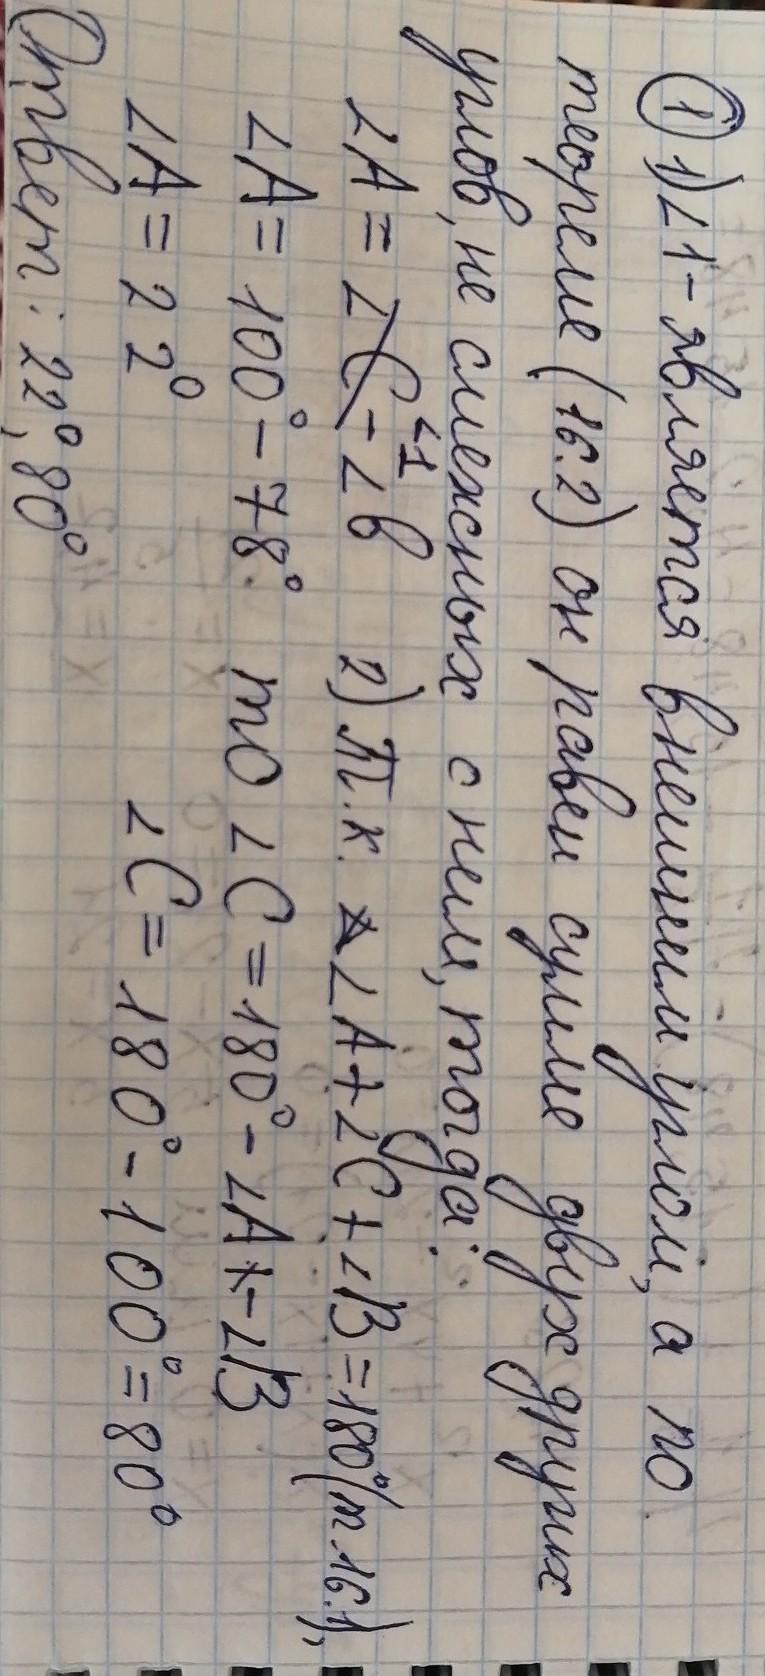 ① 1) ∠1 - является внешним углом, а по
теореме (16.2) он равен сумме двух других
углов, не смежных с ним, тогда:
∠A = ∠1 - ∠B 2) Т.к. ∠A + ∠C + ∠B = 180° (т 16.1),
∠A = 100° - 78° то ∠C = 180° - ∠A - ∠B
∠A = 22° ∠C = 180° - 100° = 80°
Ответ: 22°, 80°